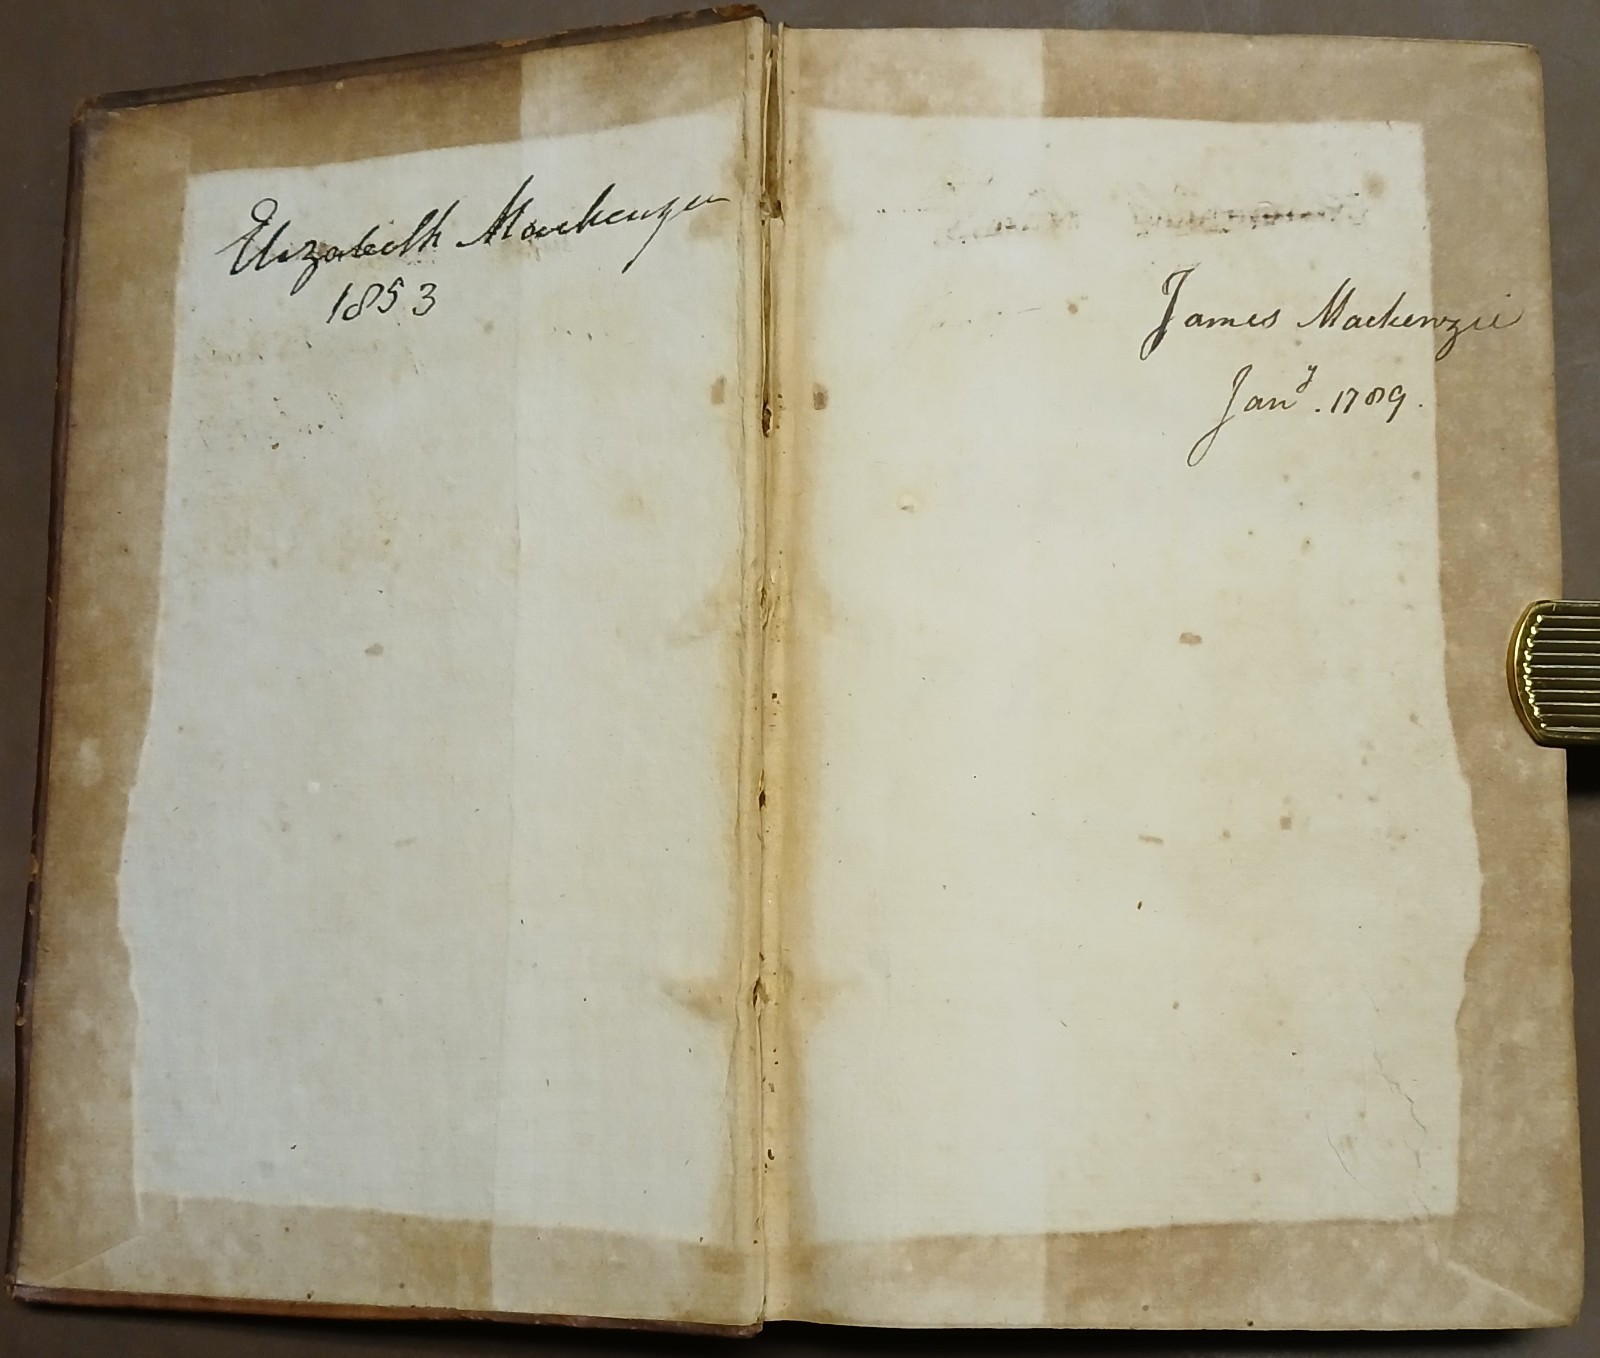 Elizabeth Mackenzie
1853
James Mackenzie
Janʸ. 1789.